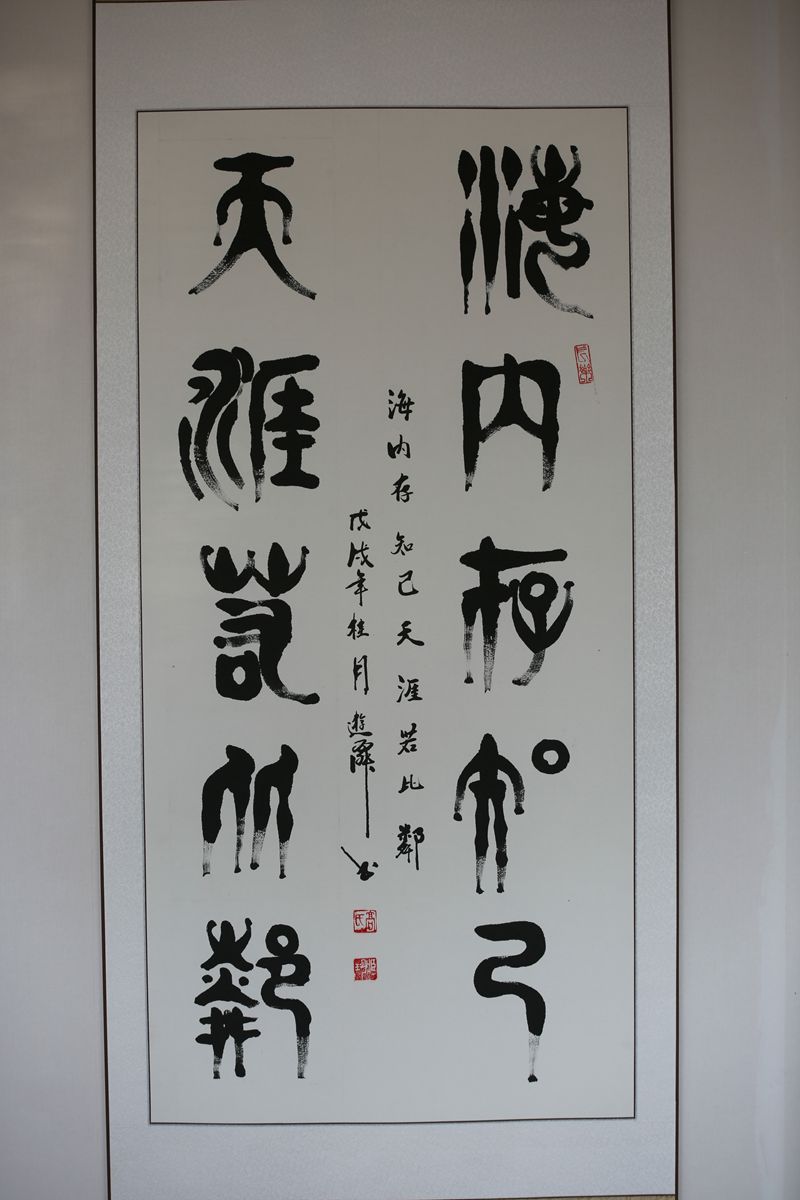 海内存知己
天涯若比鄰
海内存知己天涯若比鄰
戊戌年桂月
書
高氏